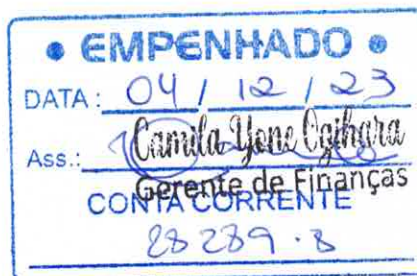 • EMPENHADO •
DATA: 04 / 12 / 23
Ass.: Camila Yone Ogihara
Gerente de Finanças
CONTA CORRENTE
28289.8